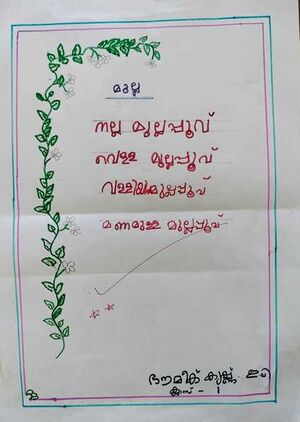 മുല്ല
നല്ല മുല്ലപ്പൂവ്
വെള്ള മുല്ലപ്പൂവ്
വള്ളിയിൽമുല്ലപ്പൂവ്
മണമുള്ള മുല്ലപ്പൂവ്
ഭൗമിക് കൃഷ്ണ.
ക്ലാസ് - 1